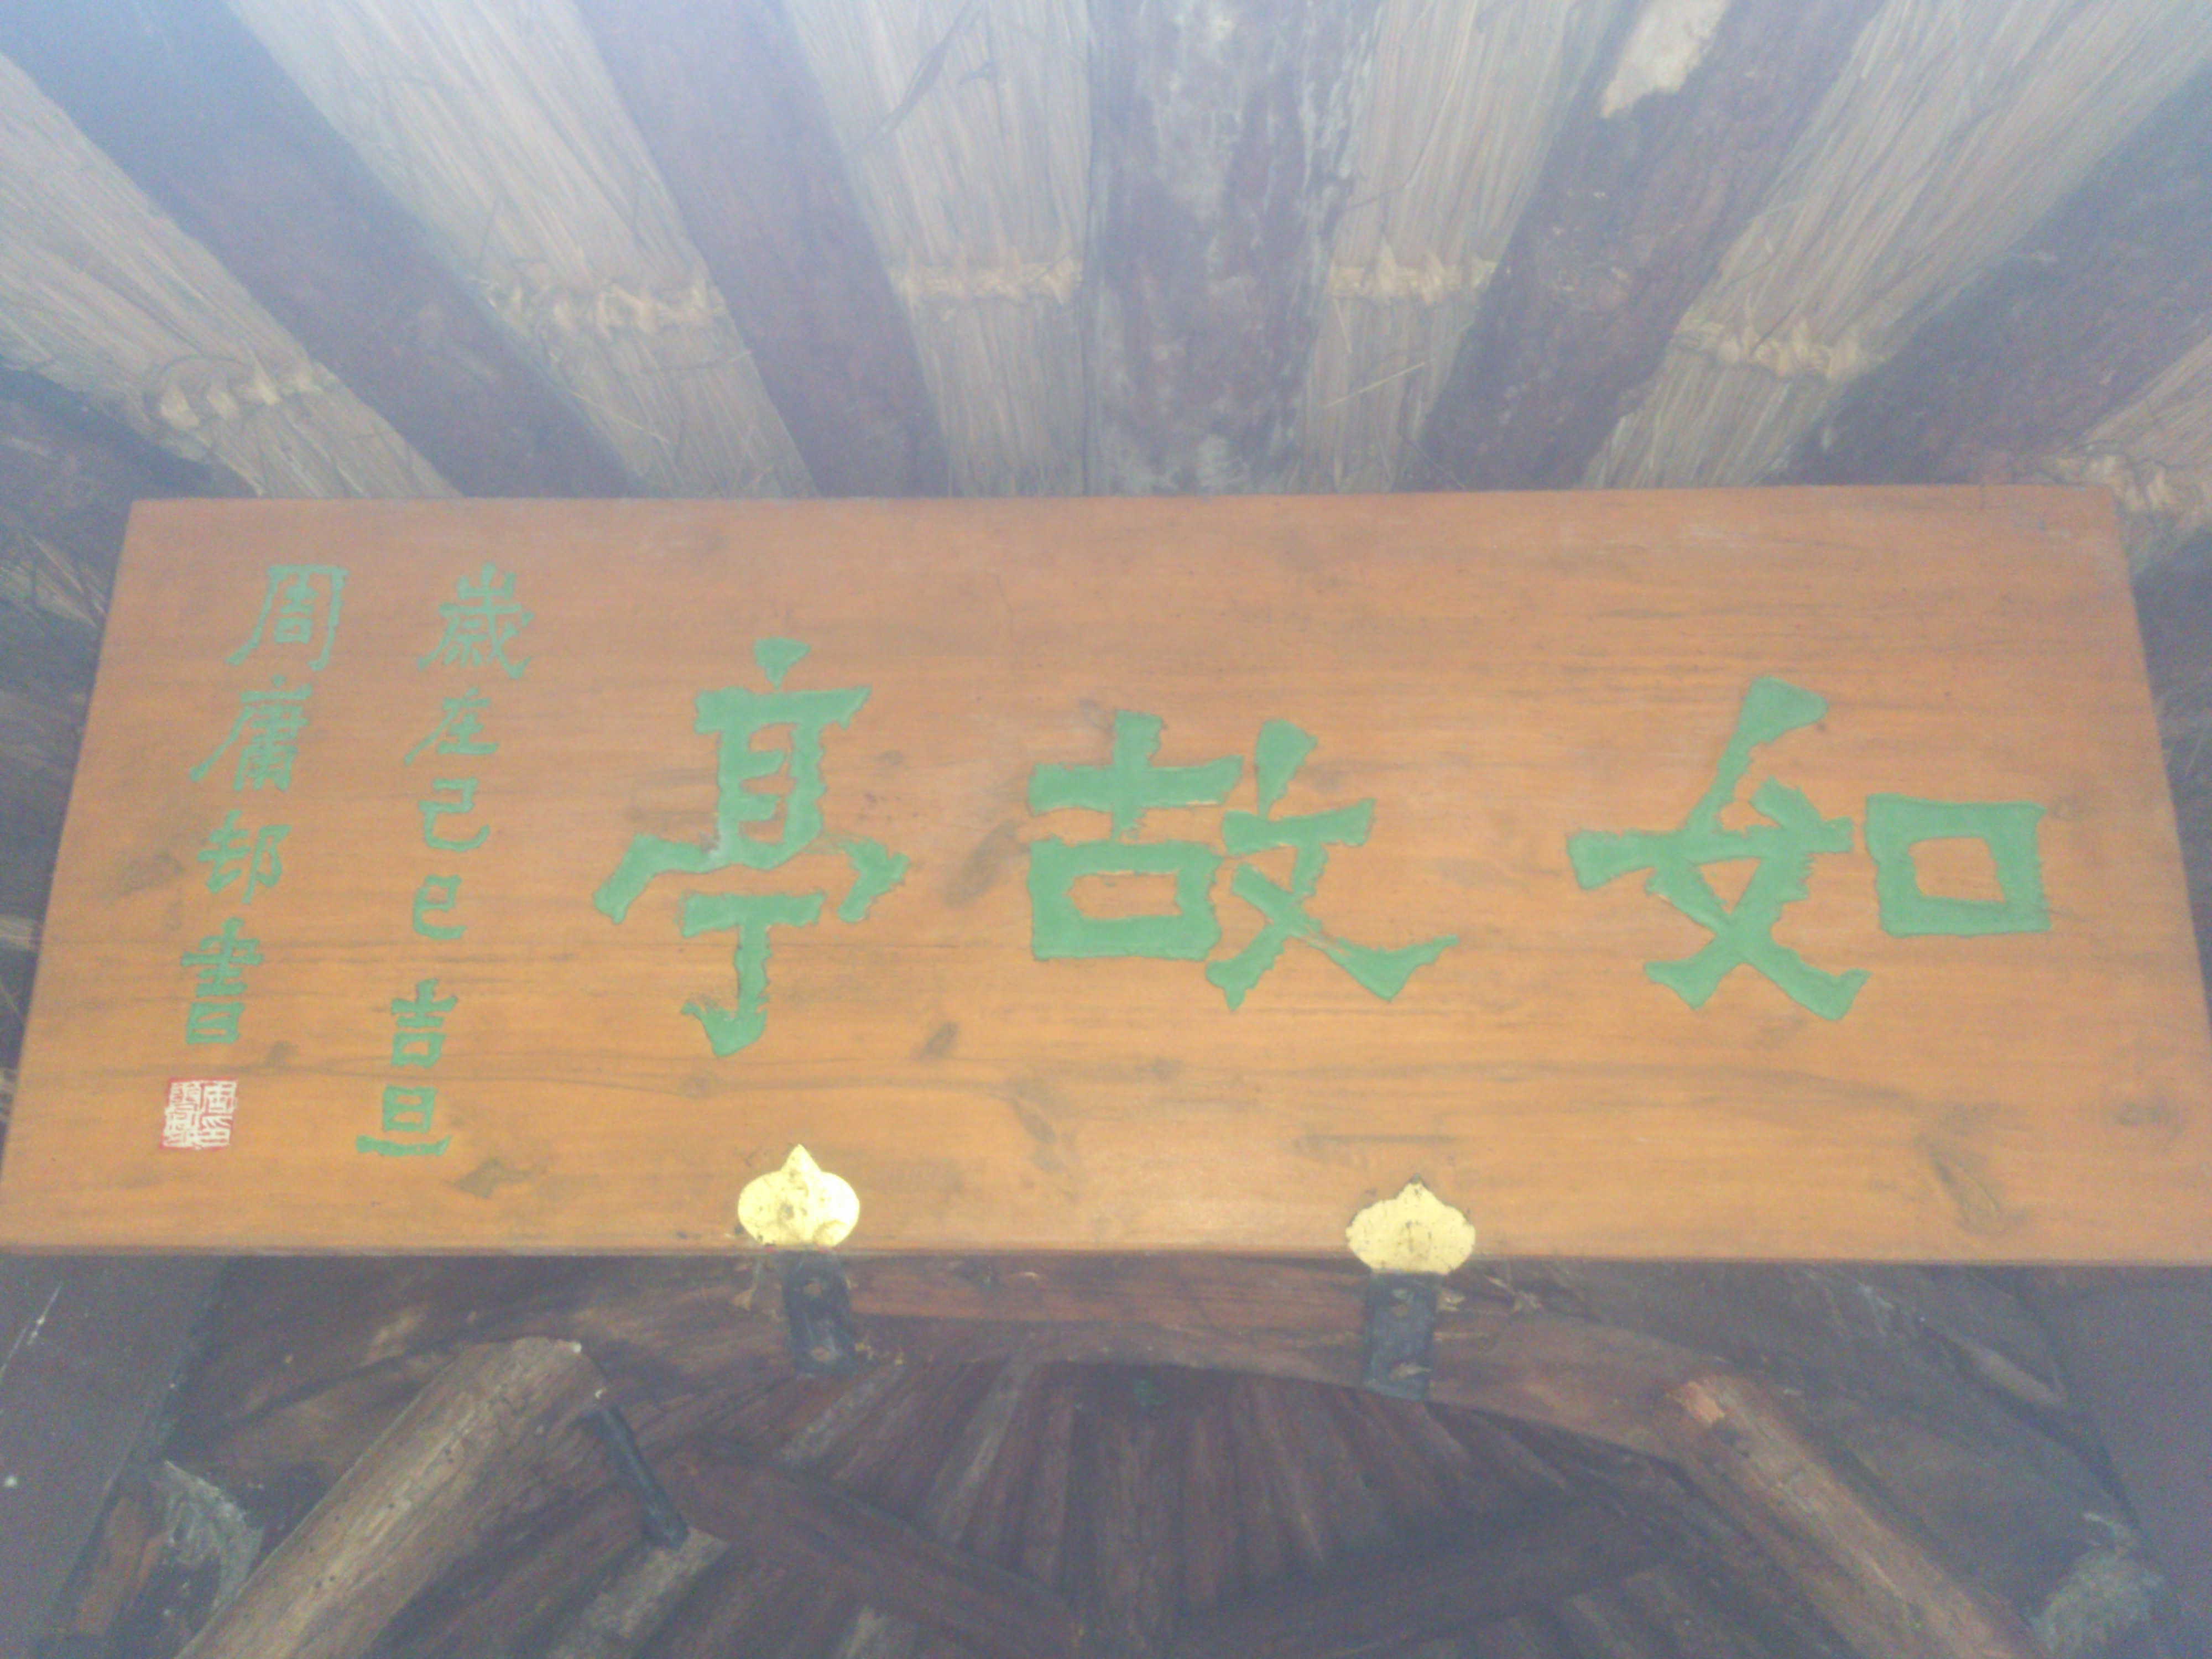 如故亭
歲在己巳吉旦
周庸邨書